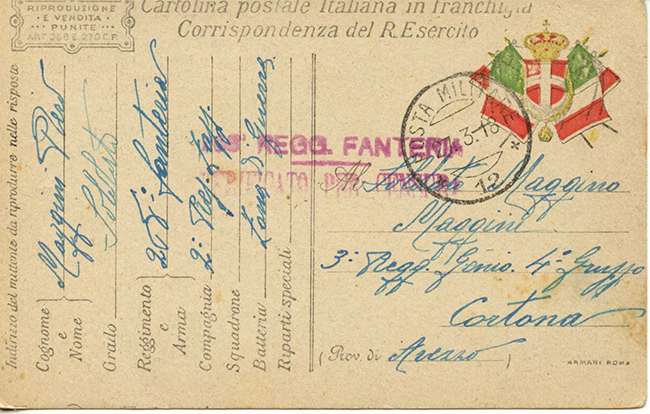 RIPRODUZIONE
E VENDITA
PUNITE
ART. 268 E 270 C.P.
Cartolina postale Italiana in franchigia
Corrispondenza del R. Esercito
POSTA MILITARE
3.18
12
REGG. FANTERIA
VERIFICATO PER CENSURA
Al Soldato Maggino
Maggini
3° Regg. Genio. 4° Gruppo
Cortona
(Prov. di Arezzo)
ARMANI ROMA
Indirizzo del mittente da riprodurre nelle risposte
Cognome e Nome Maggini
Grado Soldato
Reggimento e Arma Fanteria
Compagnia 2°
Squadrone
Batteria Zona di Guerra
Riparti speciali